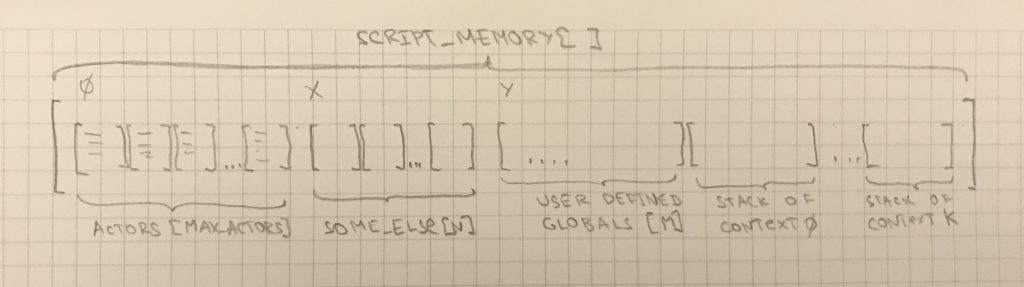 SCRIPT_MEMORY[ ]
Ø X Y
[[ ][ ][ ]...[ ] [ ][ ]...[ ] [.... ][ ]....[ ]]
ACTORS [MAX_ACTORS] SOME_ELSE[N] USER DEFINED GLOBALS [M] STACK OF CONTEXT Ø STACK OF CONTEXT K